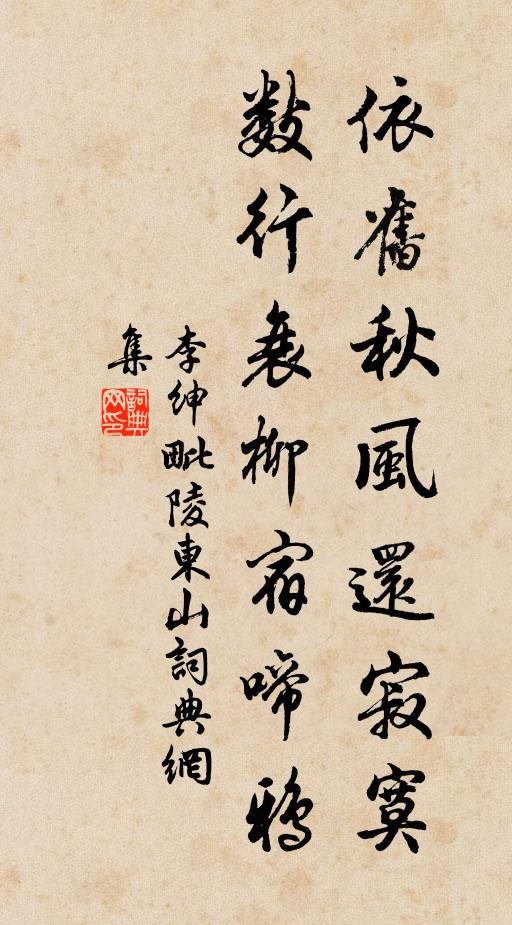 依舊秋風還寂寞
數行衰柳宿啼鴉
李紳毗陵東山詞典網
集
詞典
网印